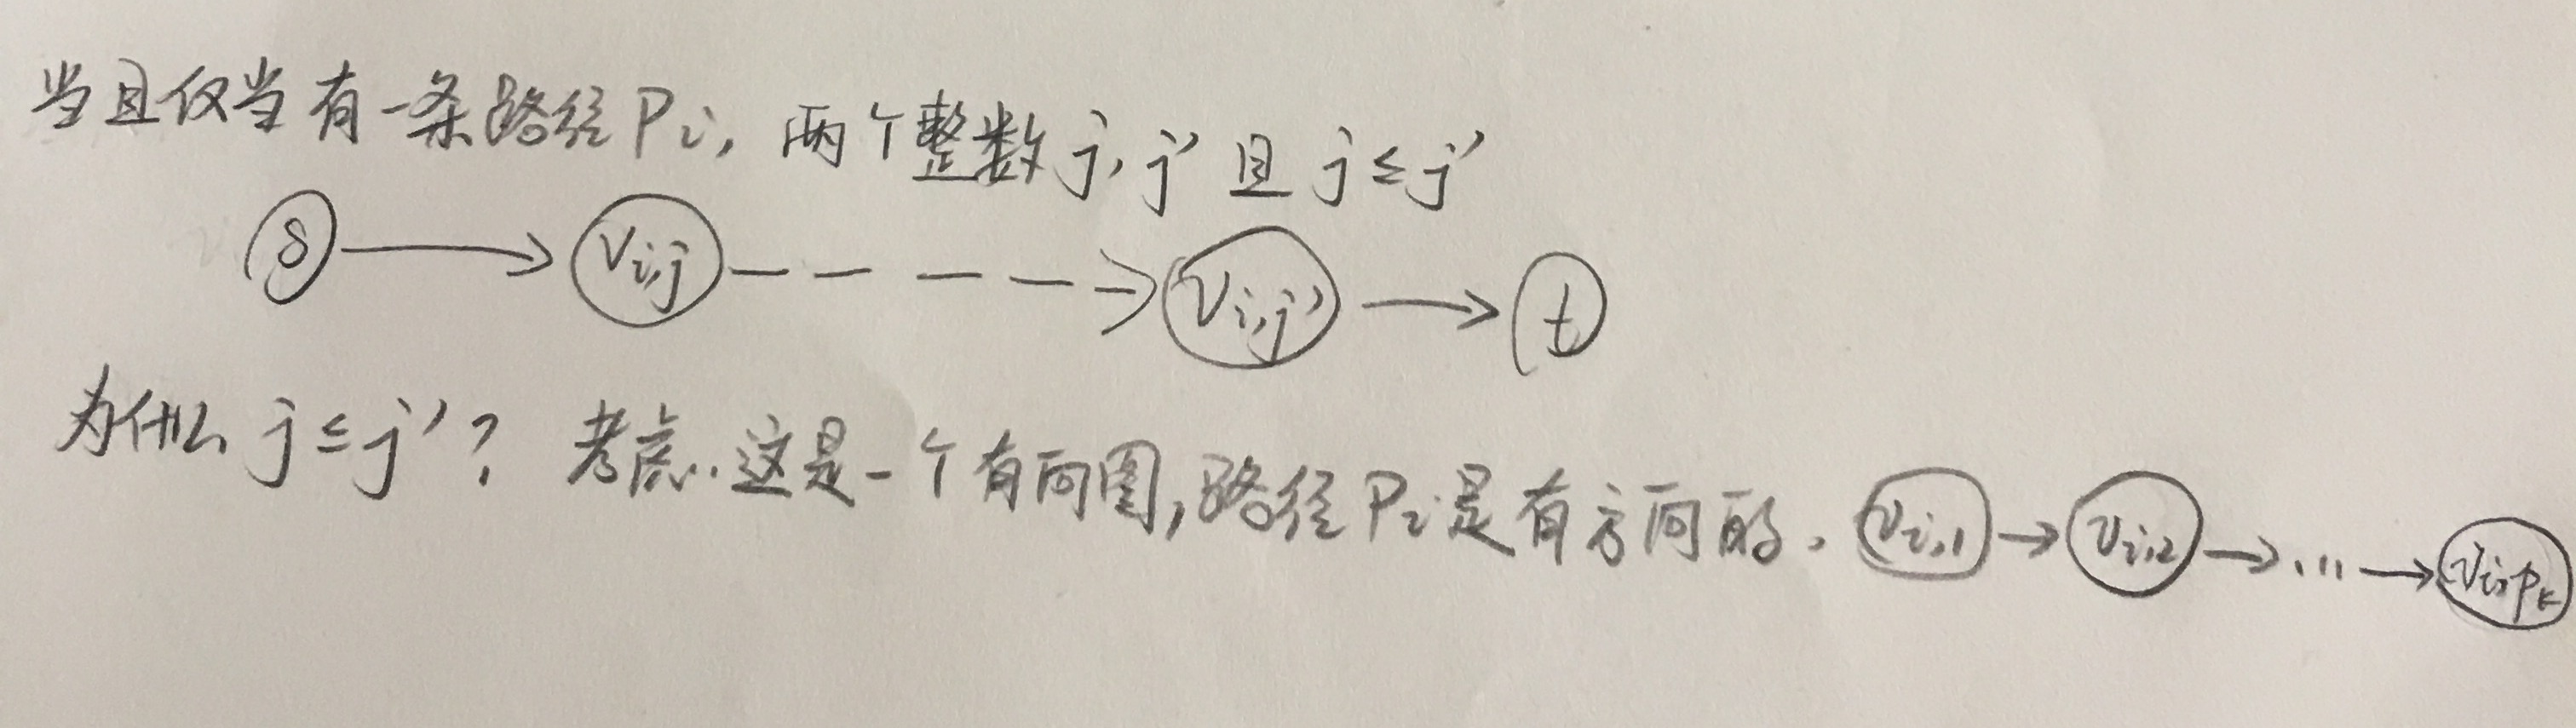 当且仅当有一条路径 Pi, 两个整数 j, j' 且 j ≤ j'
s → vi,j - - - - → vi,j' → t
为什么 j ≤ j' ? 考虑这是一个有向图, 路径 Pi 是有方向的, vi,1 → vi,2 → ... → vi,pk